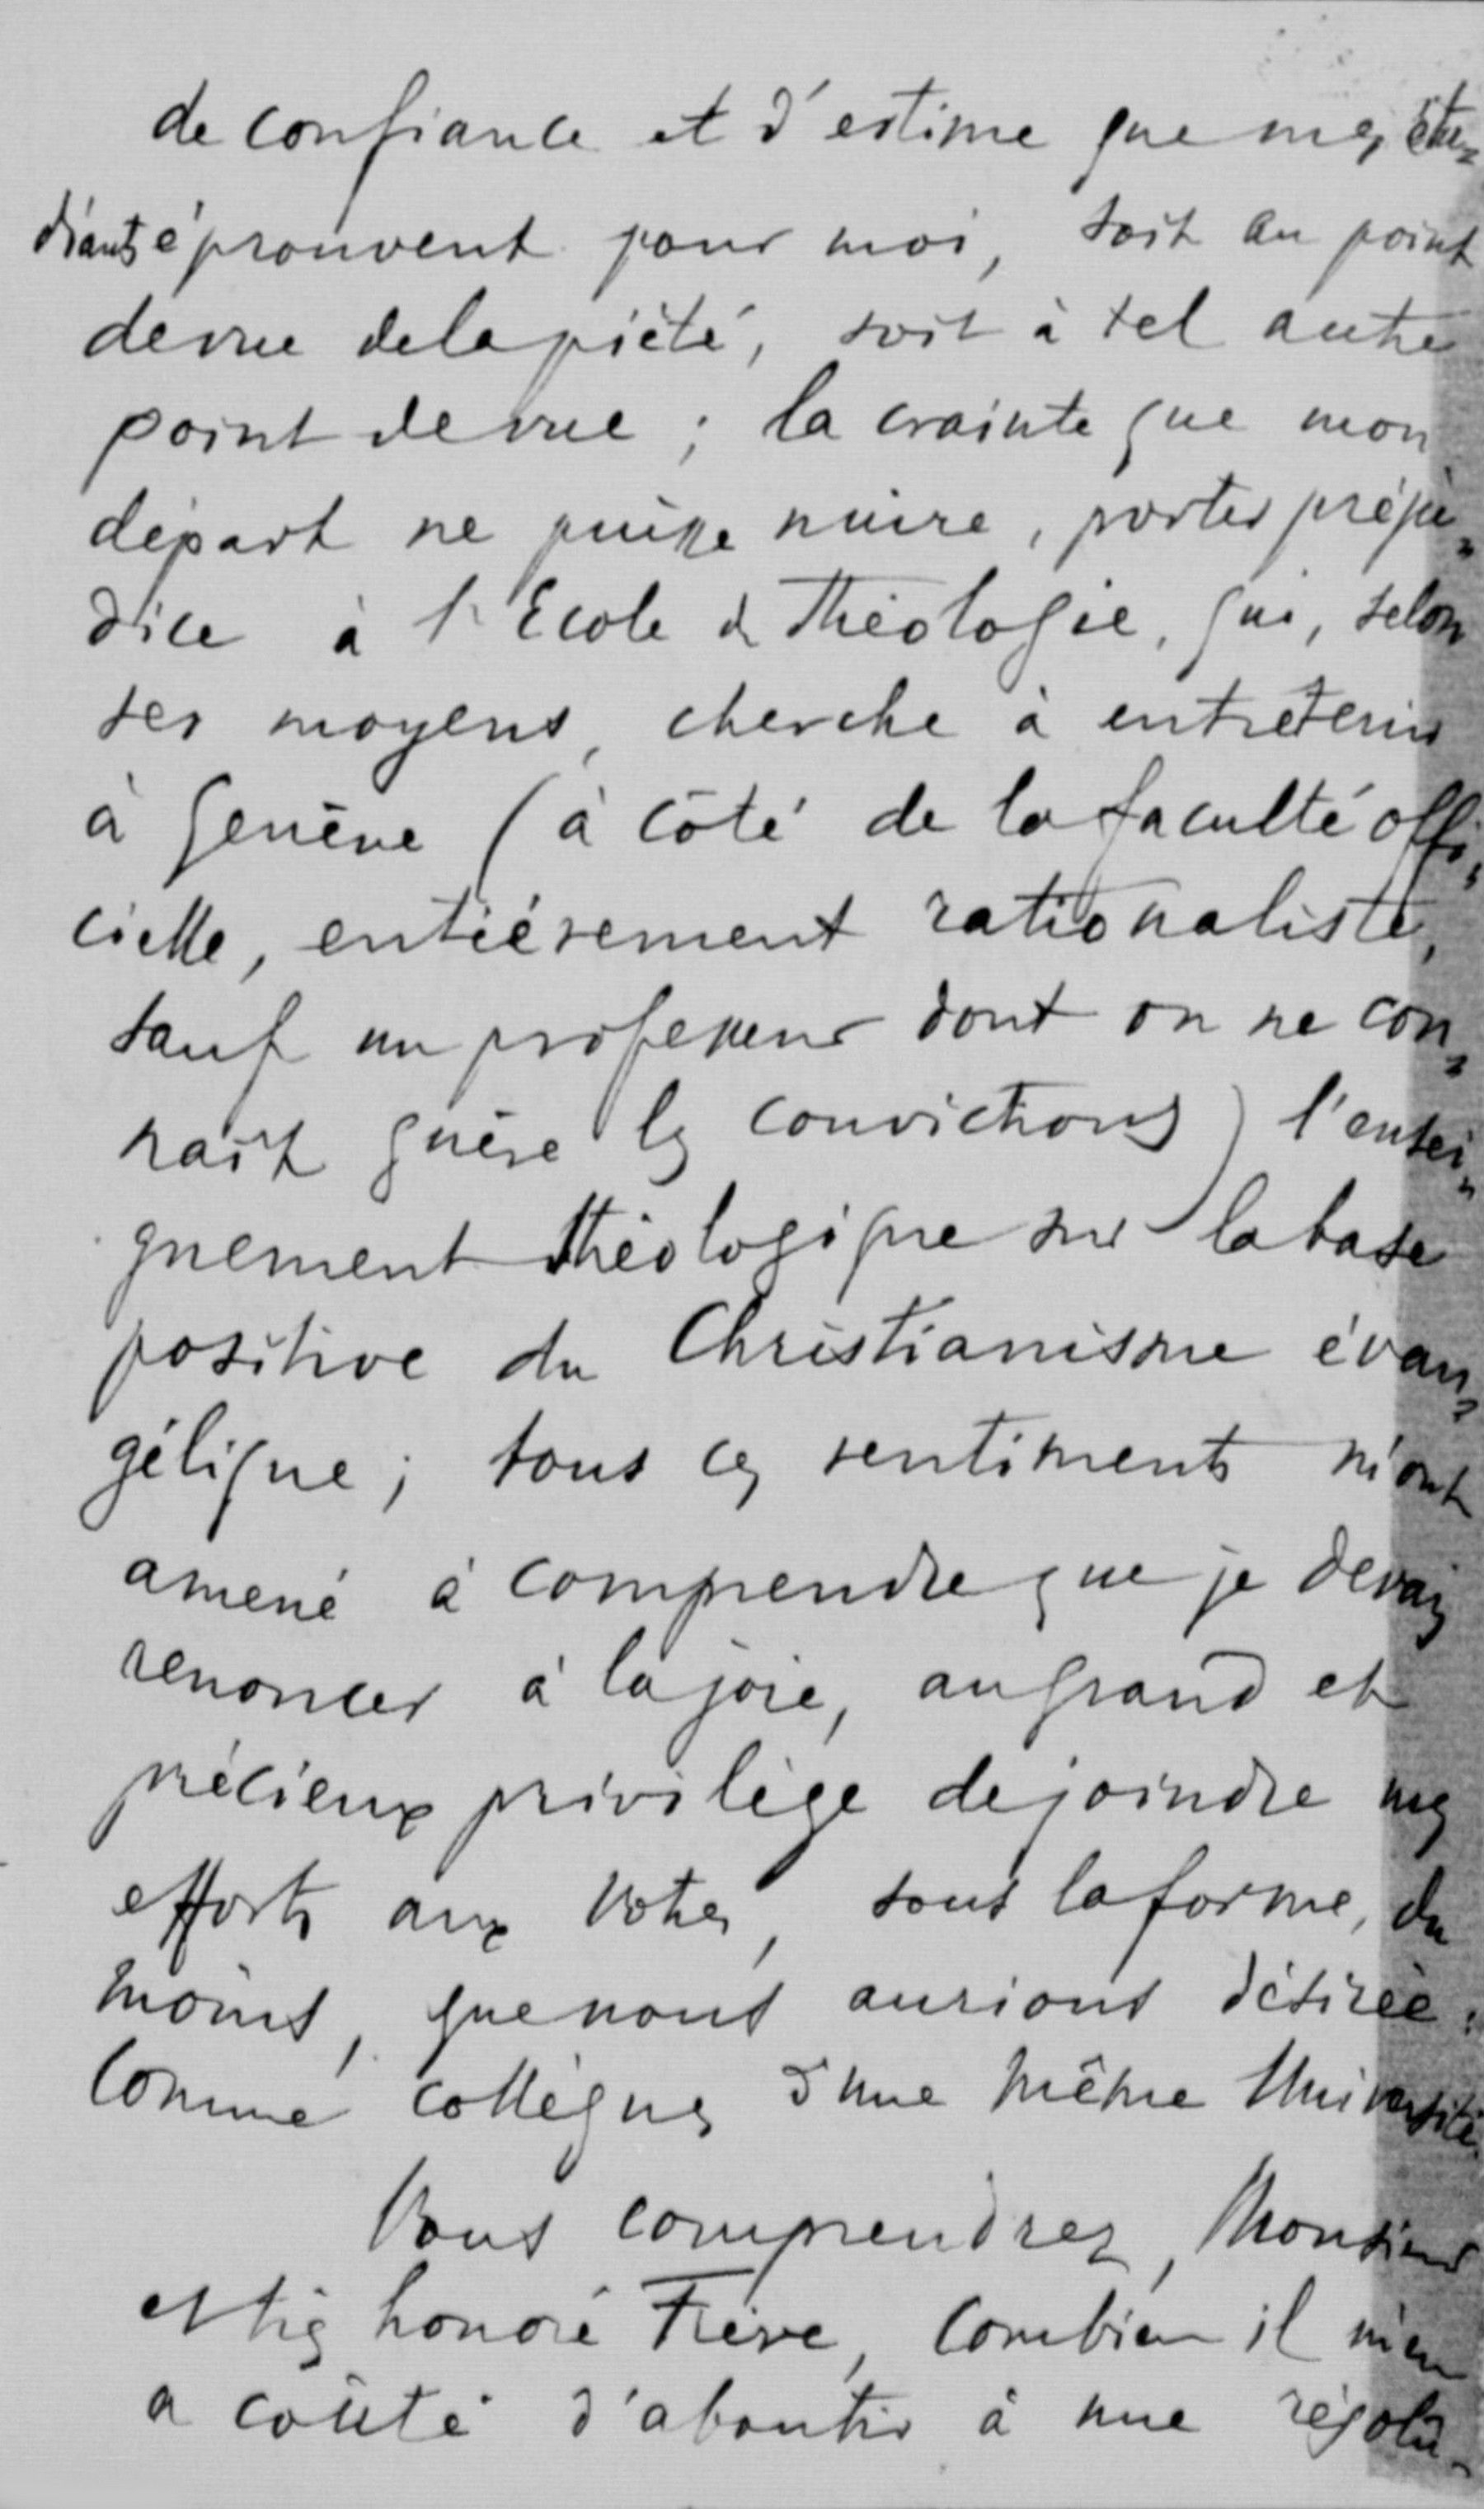 de confiance et d'estime que mes étu-
diants éprouvent pour moi, soit au point
de vue de la piété, soit à tel autre
point de vue ; la crainte que mon
départ ne puisse nuire, porter préju-
dice à l'Ecole de Théologie, qui, selon
ses moyens, cherche à entretenir
à Genève (à côté de la faculté offi-
cielle, entièrement rationaliste,
sauf un professeur dont on ne con-
naît guère les convictions) l'ensei-
gnement théologique sur la base
positive du Christianisme évan-
gélique ; tous ces sentiments m'ont
amené à comprendre que je devais
renoncer à la joie, au grand et
précieux privilège de joindre mes
efforts aux vôtres, sous la forme, du
moins, que nous aurions désirée :
Comme collègues d'une même Université.
Vous comprendrez, Monsieur
et très honoré Frère, combien il m'en
a coûté d'aboutir à une résolu-